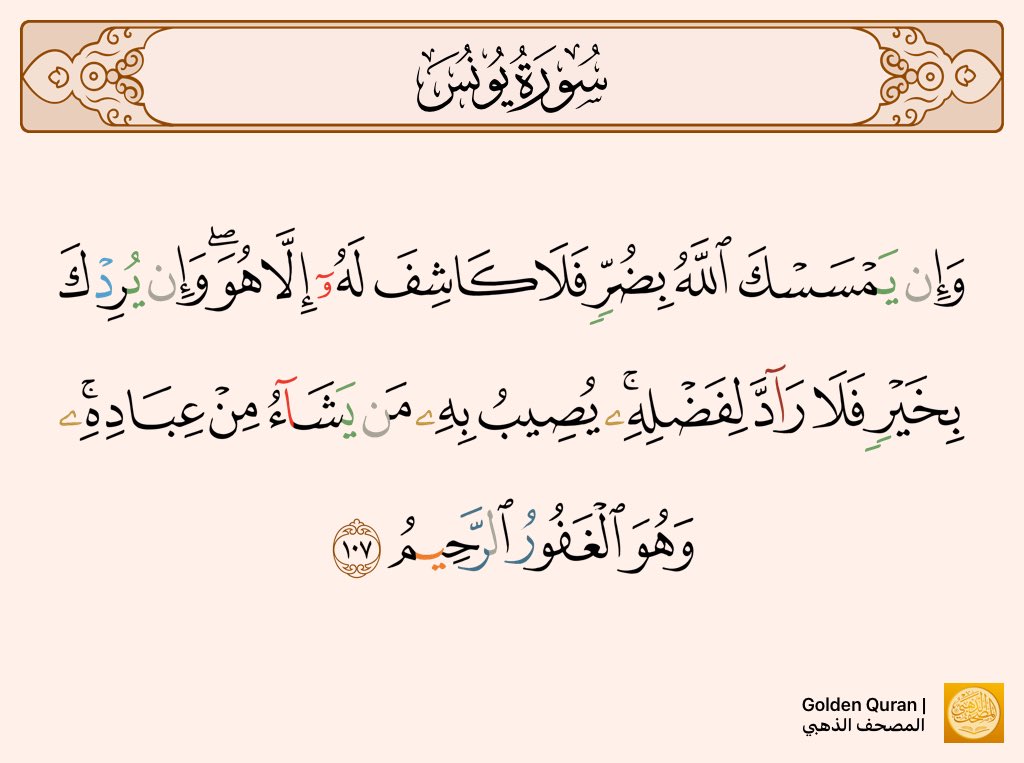 سُورَةُ يُونُسَ
وَإِن يَمۡسَسۡكَ ٱللَّهُ بِضُرّٖ فَلَا كَاشِفَ لَهُۥٓ إِلَّا هُوَۖ وَإِن يُرِدۡكَ
بِخَيۡرٖ فَلَا رَآدَّ لِفَضۡلِهِۦۚ يُصِيبُ بِهِۦ مَن يَشَآءُ مِنۡ عِبَادِهِۦۚ
وَهُوَ ٱلۡغَفُورُ ٱلرَّحِيمُ ١٠٧
Golden Quran |
المصحف الذهبي
المصحف الذهبي